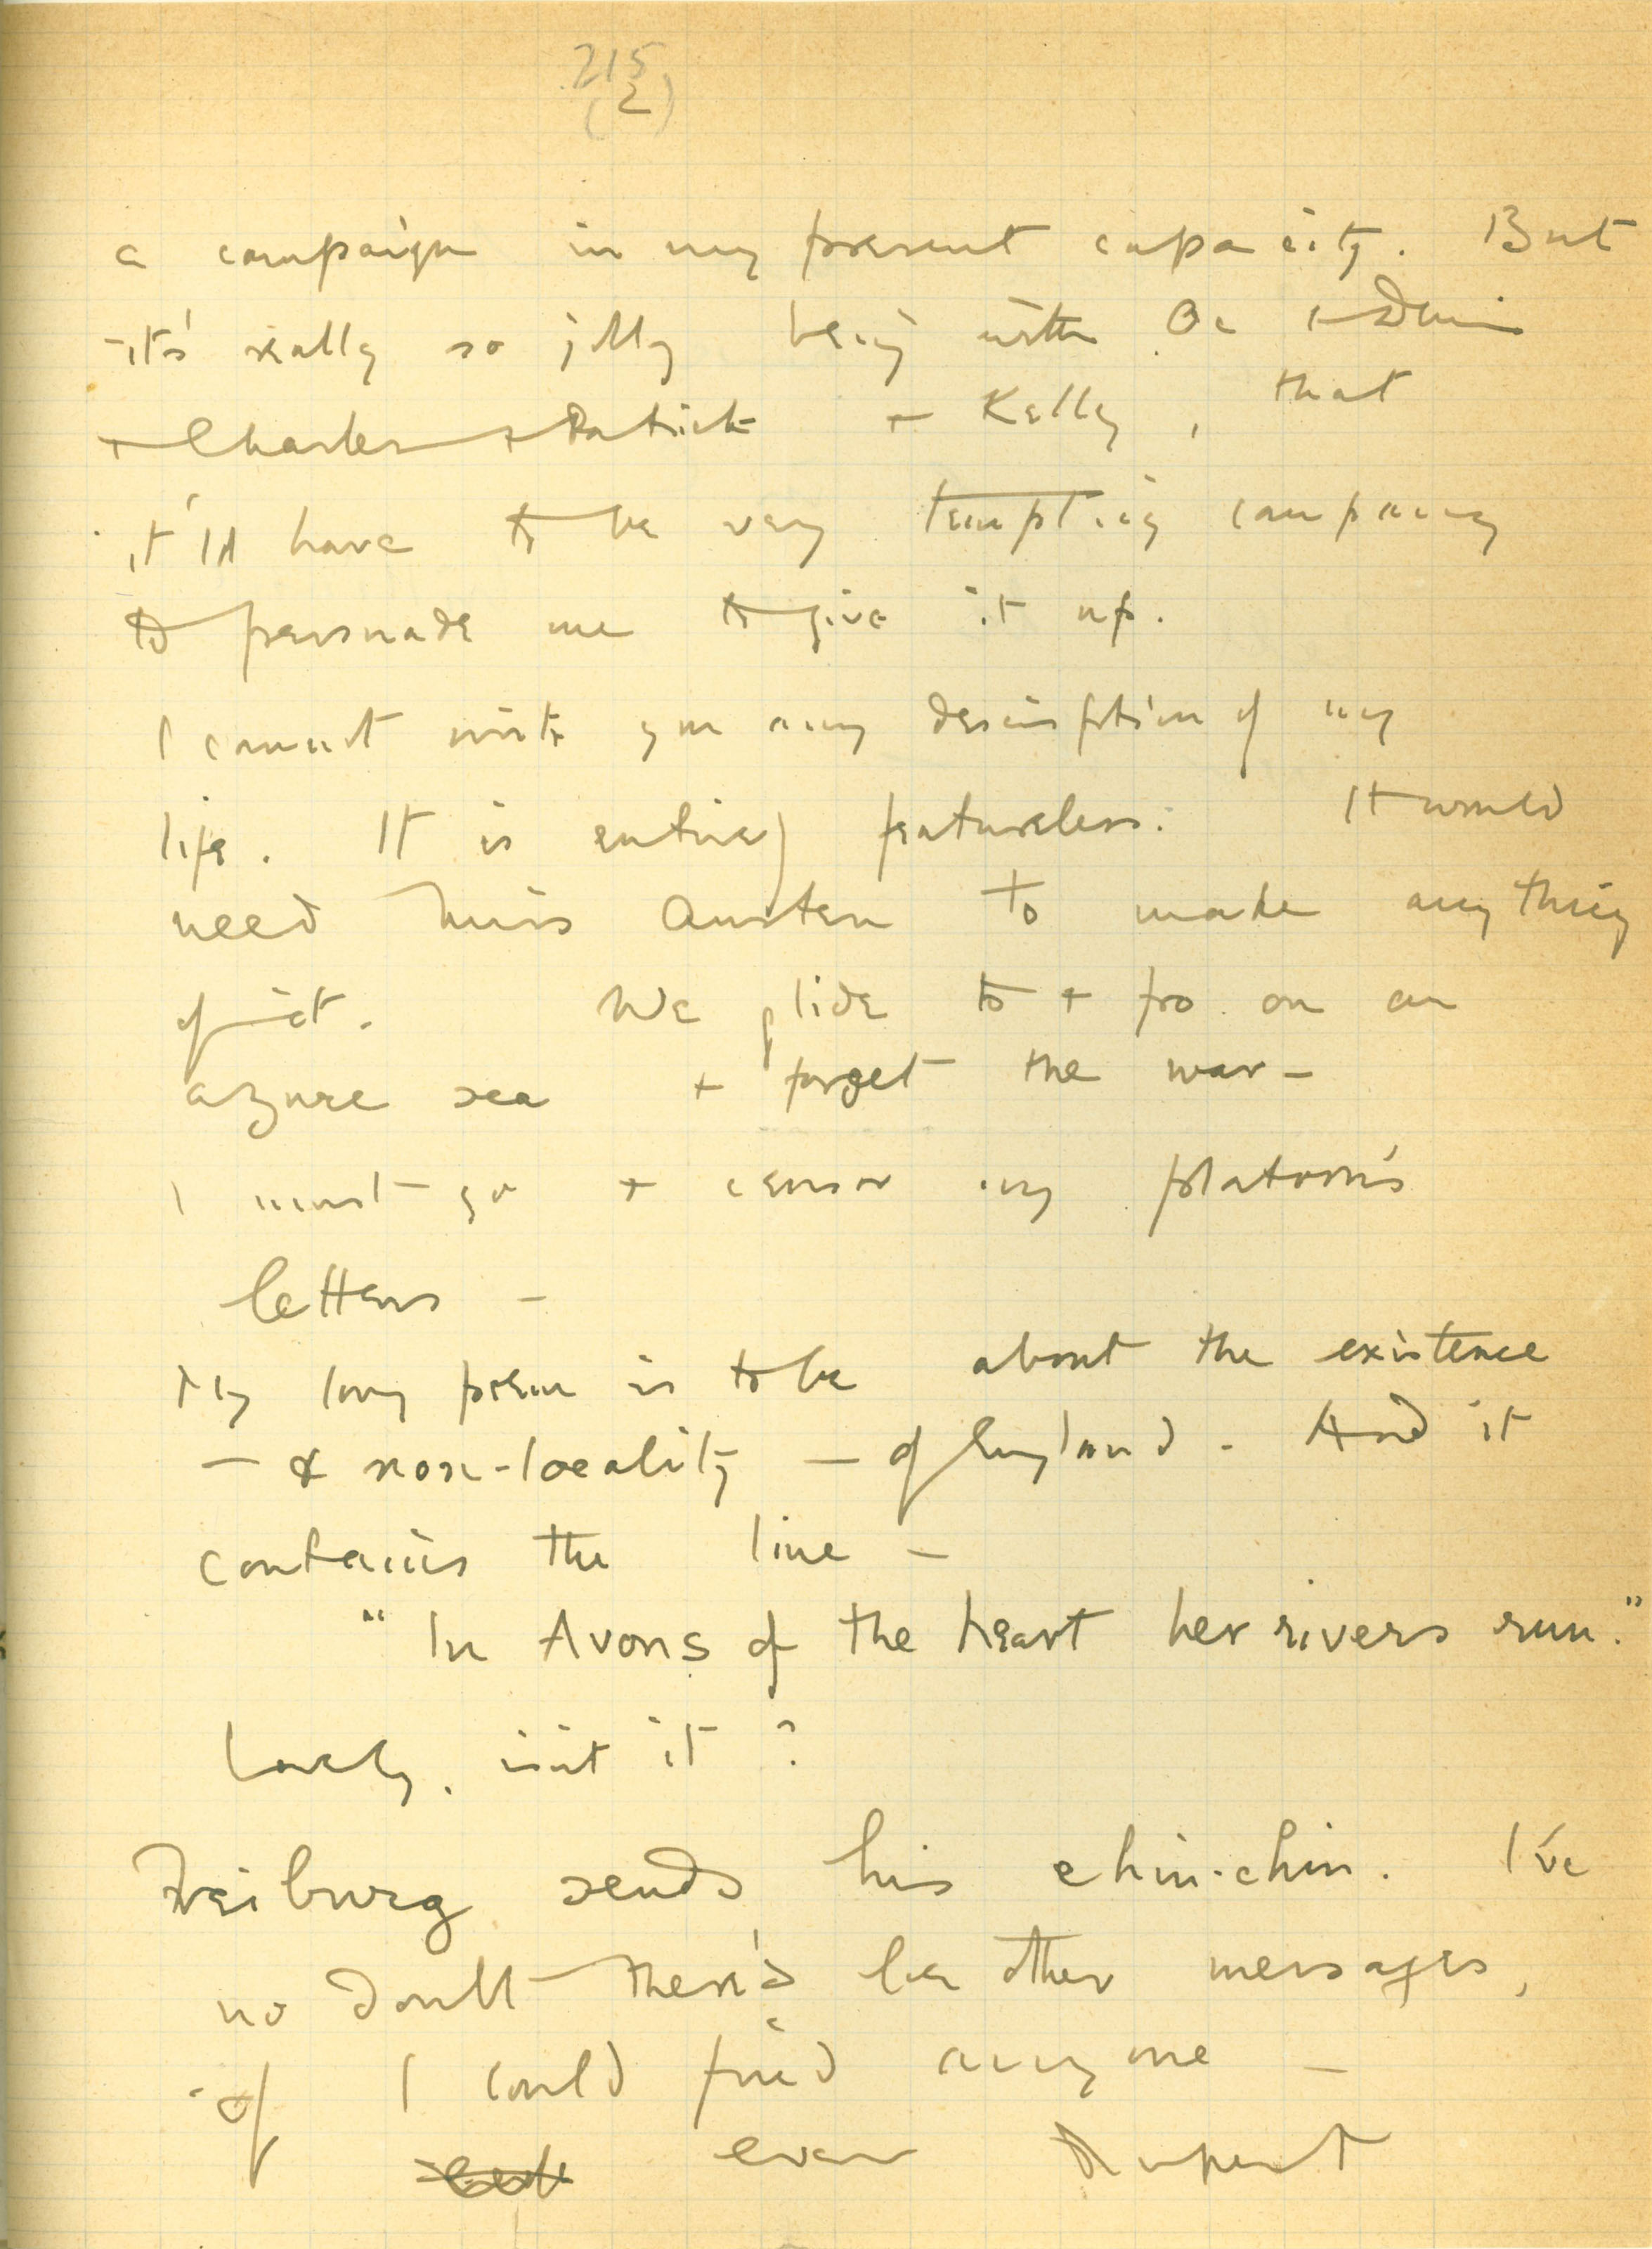 215
(2)
a campaign in my present capacity. But
it's really so jolly being with Oc & Denis
& Charles & Patrick & Kelly, that
it'ld have to be very tempting company
to persuade me to give it up.
I cannot write you any description of my
life. It is entirely featureless. It would
need Miss Austen to make anything
of it. We glide to & fro on an
azure sea & forget the war –
I must go & censor my platoon's
letters –
My long poem is to be about the existence
– & non-locality – of England. And it
contains the line –
"In Avons of the heart her rivers run."
Lovely, isn't it?
Freiburg sends his chin-chin. I've
no doubt there'd be other messages,
if I could find anyone –
ever Rupert